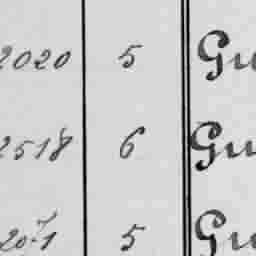 2020 5 Gu
2518 6 Gu
5 Gu